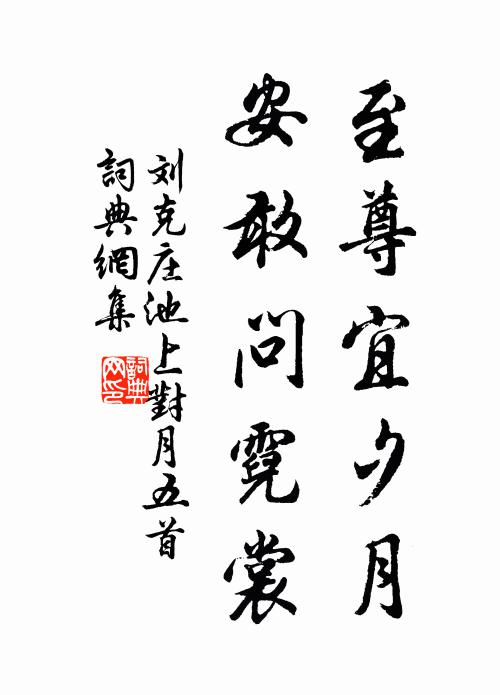 至尊宜夕月
安敢問霓裳
刘克庄池上對月五首
詞典網集
詞典網印